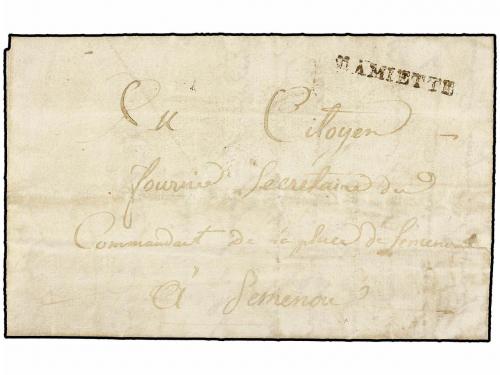 DAMIETTE
Au Citoyen
fournié Secretaire du
Commandant de la place de Semenou
à Semenou